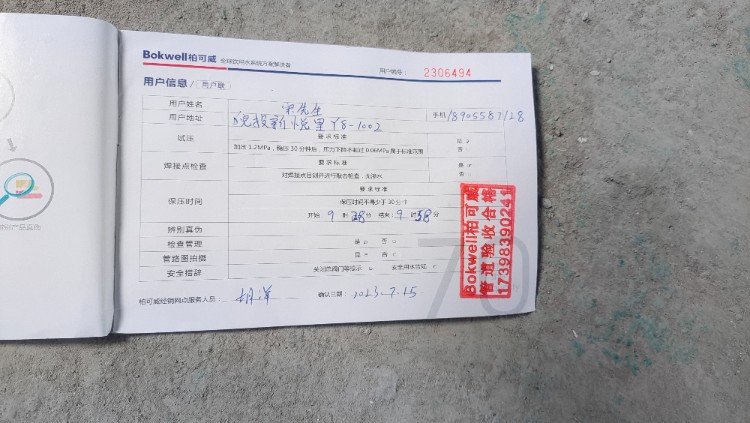 Bokwell柏可威 全球饮用水系统方案解决者
用户编号： 2306494
用户信息/ 用户联
用户姓名 宋先生
用户地址 皖投新悦里 Y8-1002 手机 18905587128
试压 要求标准
加压1.2MPa，稳压30分钟后，压力下降不超过0.06MPa属于标准范围
是
否
焊接点检查 要求标准
是
否
保压时间 要求标准
保压时间不得少于30分钟
开始 9 时 28 分 结束：9 时 58 分
辨别真伪
检查管理 是 否
管路图拍摄 是 否
安全措辞
柏可威经销网点服务人员： 胡洋 确认日期： 2023-7-15
70
Bokwell柏可威
管道验收合格
17398390241